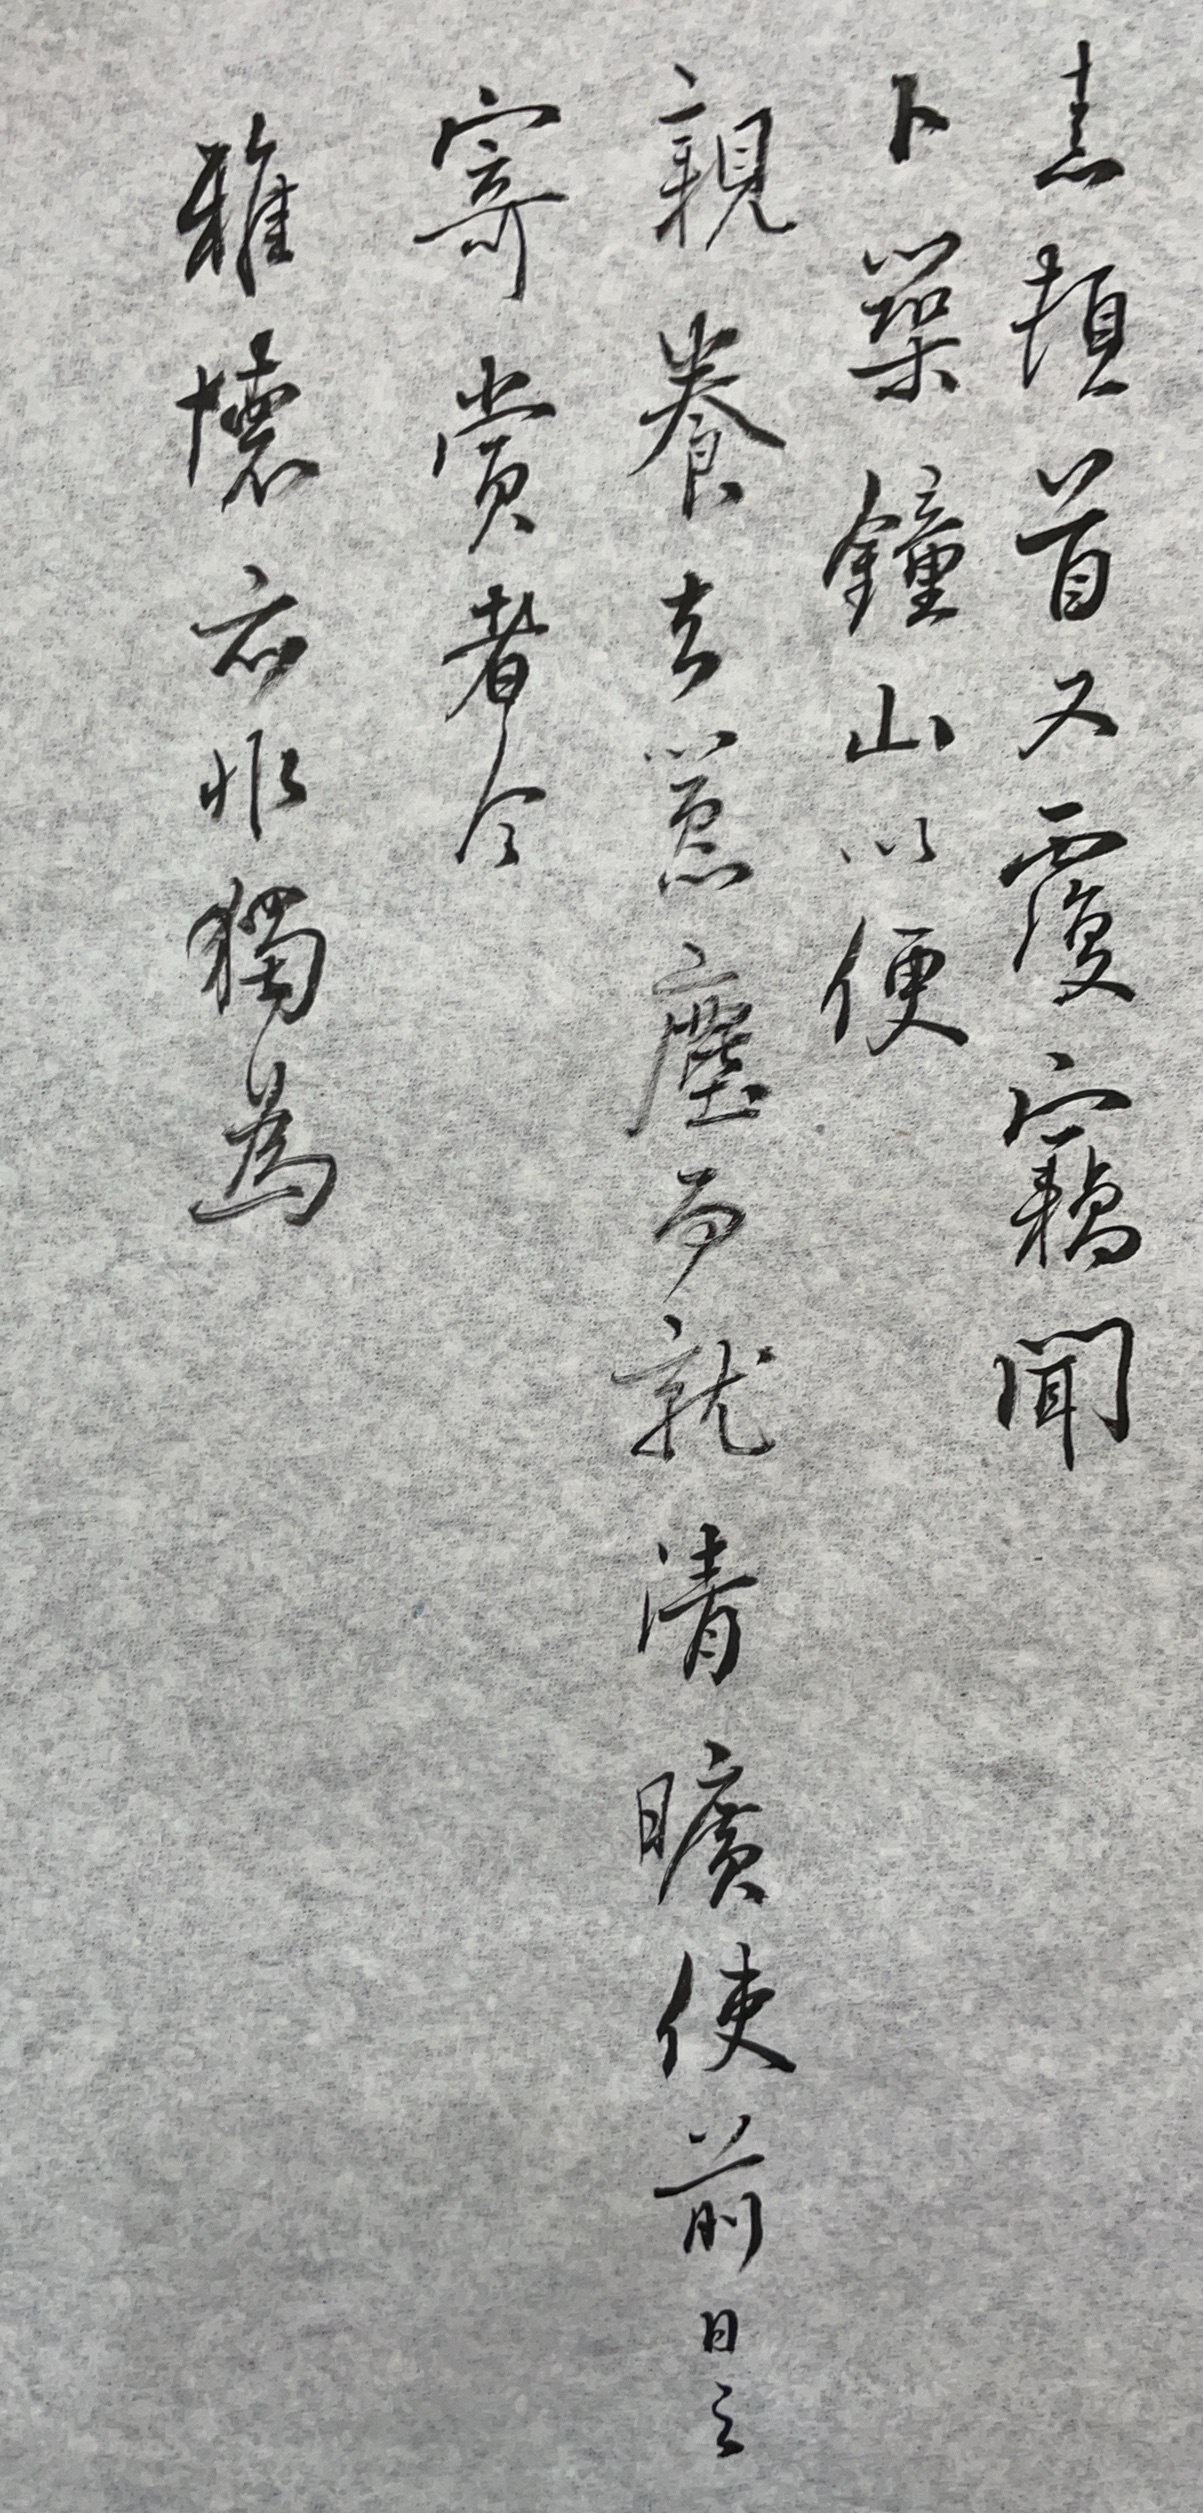 頓首又覆竊聞
卜築鐘山以便
親養去囂塵而就清曠使前日之
寄賞者今
雅懷亦非獨為